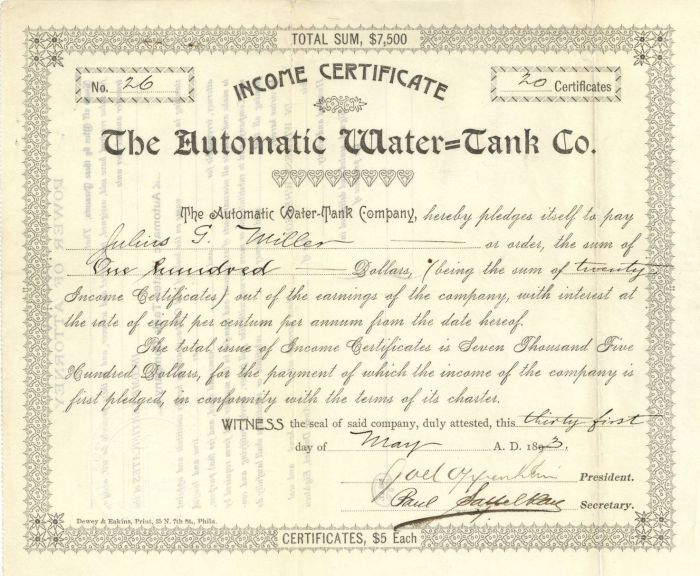 TOTAL SUM, $7,500
No. 26
INCOME CERTIFICATE
20 Certificates
The Automatic Water=Tank Co.
The Automatic Water-Tank Company, hereby pledges itself to pay
Julius F. Miller or order, the sum of
One hundred Dollars, (being the sum of twenty
Income Certificates) out of the earnings of the company, with interest at
the rate of eight per centum per annum from the date hereof.
The total issue of Income Certificates is Seven Thousand Five
Hundred Dollars, for the payment of which the income of the company is
first pledged, in conformity with the terms of its charter.
WITNESS the seal of said company, duly attested, this thirty first
day of May A. D. 1893.
President.
Paul Secretary.
Dewey & Eakins, Print, 35 N. 7th St., Phila.
CERTIFICATES, $5 Each
POWER OF ATTORNEY